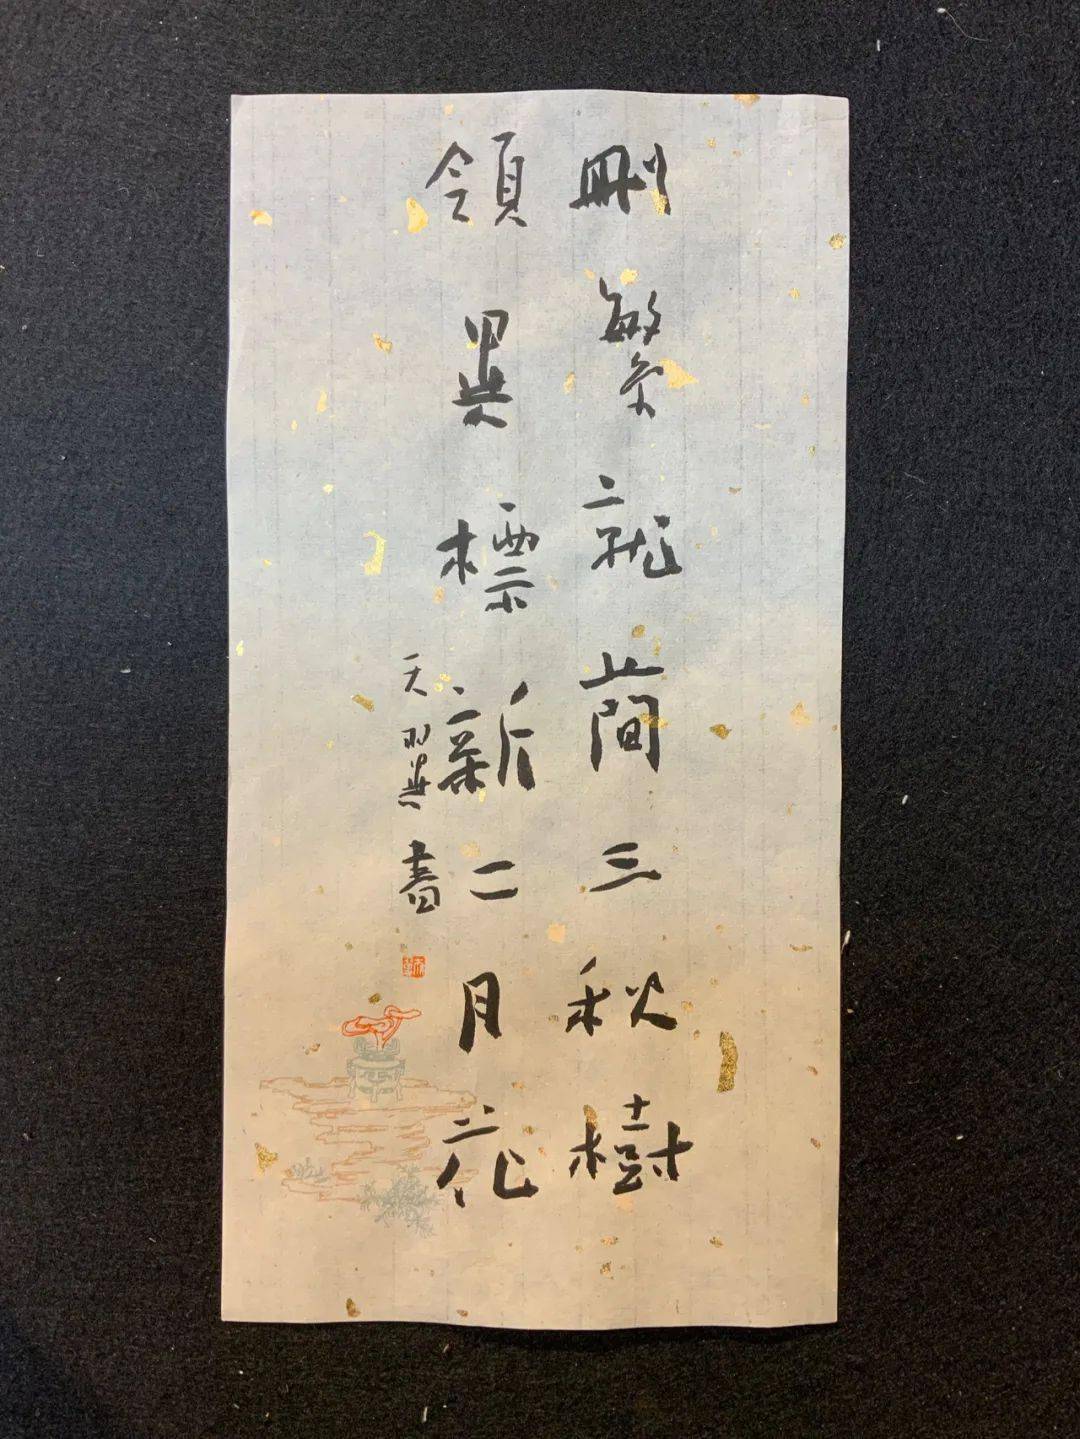 刪繁就簡三秋樹
領異標新二月花
天翼書